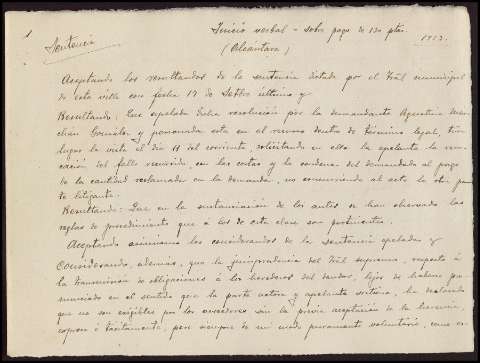 Juicio verbal - sobre pago de 120 ptas.
1913.
Sentencia
(Alcantara)
Aceptando los resultandos de la sentencia dictada por el Tral municipal
de esta villa con fecha 17 de Sebbre último y
Resultando: Que apelada dicha resolución por la demandante Agustina
González y personada esta en el recurso dentro de término legal, tuvo
lugar la vista el día 11 del corriente solicitando en ella la apelante la revo-
cación del fallo recurrido, con las costas y la condena del demandado al pago
de la cantidad reclamada en la demanda, no concurriendo al acto la otra par-
te litigante.
Resultando: Que en la sustanciación de los autos se han observado las
reglas de procedimiento que a los de esta clase son pertinentes.
Aceptando asimismo los considerandos de la sentencia apelada; y
Considerando, además, que la jurisprudencia del Tral supremo, respecto á
la transmisión de obligaciones á los herederos del deudor, lejos de haberse pro-
nunciado en el sentido que la parte actora y apelante sostiene, ha declarado
que no son exigibles por los acreedores sin la previa aceptación de la herencia,
expresa ó tácitamente, pero siempre de un modo puramente voluntario, como